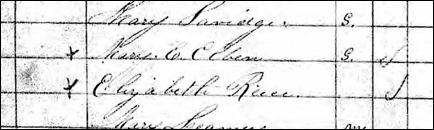 Mary Savidge. S.
x Mary E. C. Eben S.
x Elizabeth Rice.
Mary